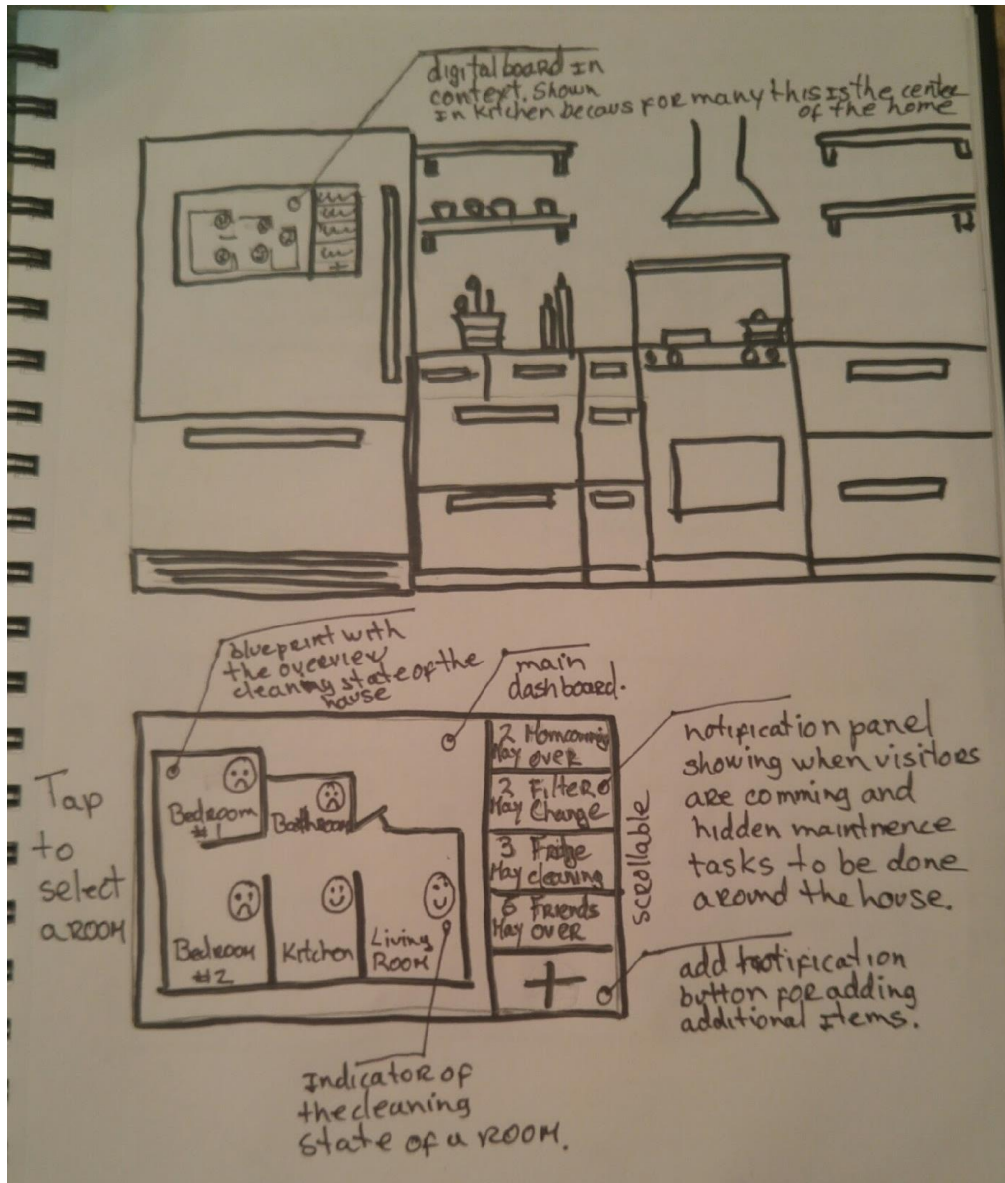 digital board In
context. Shown
In kitchen becaus for many this is the center
of the home
blueprint with
the overview
cleaning state of the
house
main
dashboard.
Tap
to
select
a ROOM
Bedroom
#1
Bathroom
Bedroom
#2
Kitchen
Living
ROOM
2 Mom comming
May over
2 Filter
May Change
3 Fridge
May cleaning
6 Friends
May over
+
scrollable
notification panel
showing when visitors
are comming and
hidden maintrence
tasks to be done
around the house.
add notification
button for adding
additional Items.
Indicator of
the cleaning
state of a ROOM.